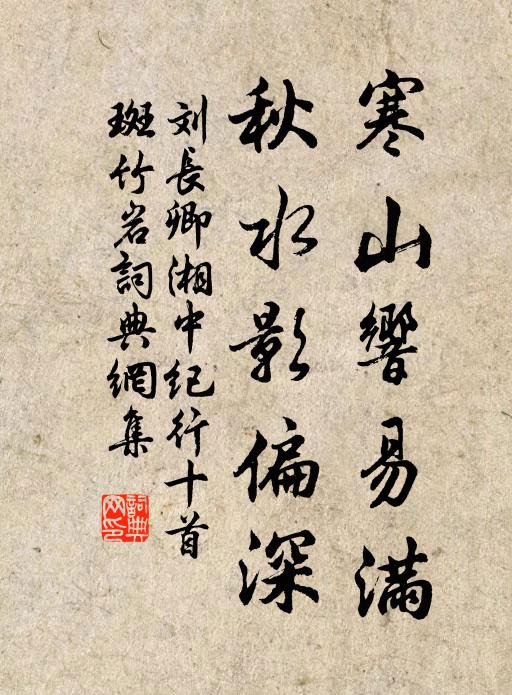 寒山響易滿
秋水影偏深
刘長卿湘中纪行十首
斑竹岩詞典網集
詞典网印